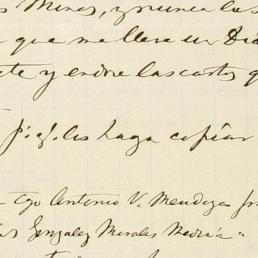 Minas, y nunca las
que me lleve un Diá
te y entre las cartas q
p.ª q.e los haga copiar
Ego Antonio V. Mendoza
Gonzalez Morales Medina"